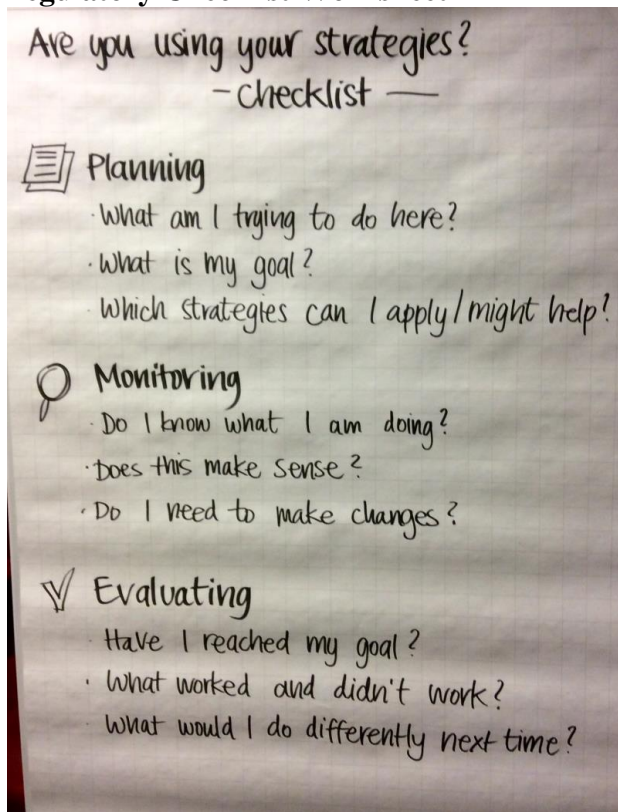 Are you using your strategies?
- Checklist —
Planning
· What am I trying to do here?
· What is my goal?
· Which strategies can I apply/might help?
Monitoring
· Do I know what I am doing?
· Does this make sense?
· Do I need to make changes?
Evaluating
· Have I reached my goal?
· What worked and didn't work?
· What would I do differently next time?